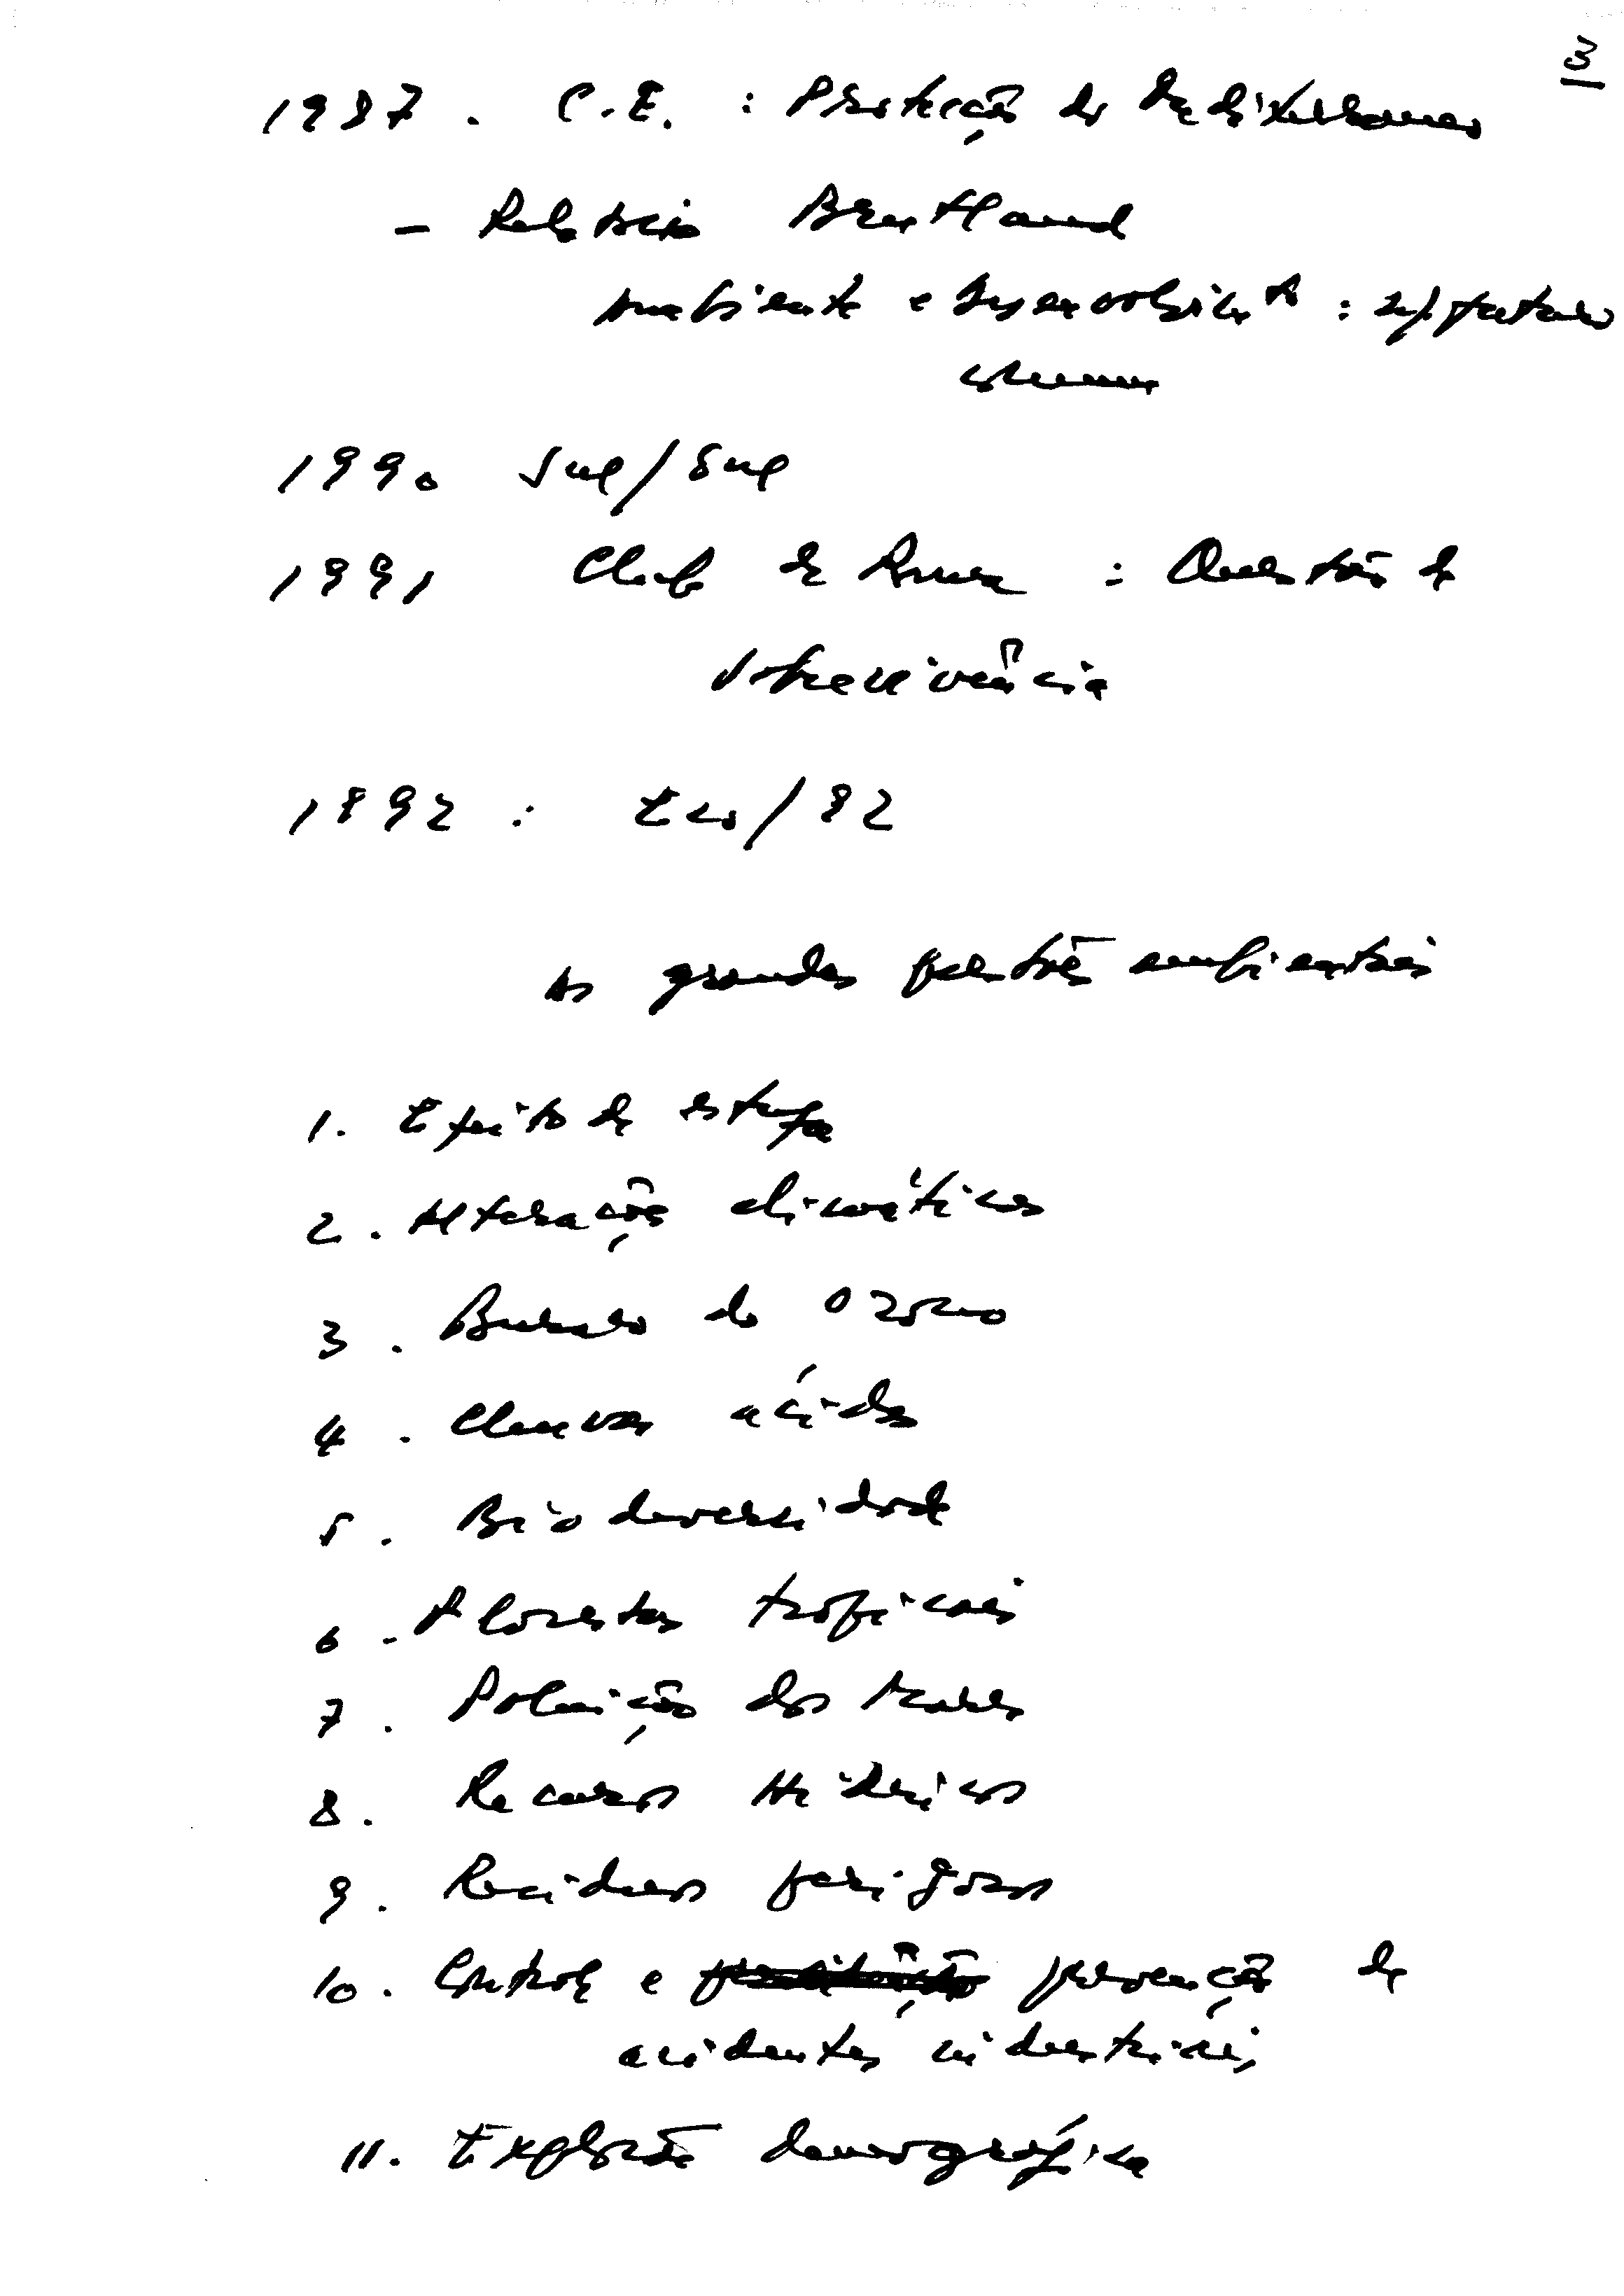 3
1987 . C.E. : Protecção do Mediterraneo
- Relatório Bruntland
Ambiente e Desenvolvimto : futuro
comum
1990 Sul/Sul
1991 Club de Roma : Questão de
sobrevivência
1992 : Eco/92
As grandes questões ambientais
1. Efeito de estufa
2. Alterações climáticas
3. Buraco do Ozono
4. Chuvas ácidas
5. Biodiversidade
6 - Florestas tropicais
7. Poluição dos Mares
8. Recursos Hídricos
9. Resíduos perigosos
10. Controle e prevenção de
acidentes industriais
11. Explosão demográfica